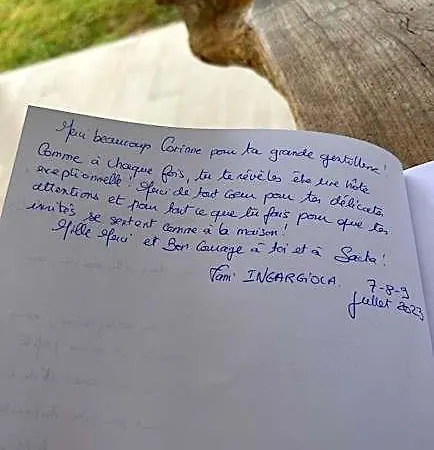 Merci beaucoup Corinne pour ta grande gentillesse !
Comme à chaque fois, tu te révèles être une hôte
exceptionnelle ! Merci de tout coeur pour tes délicates
attentions et pour tout ce que tu fais pour que les
invités se sentent comme à la maison !
Mille Merci et Bon Courage à toi et à Sacha !
Fam: INGARGIOLA
7-8-9
Juillet 2023